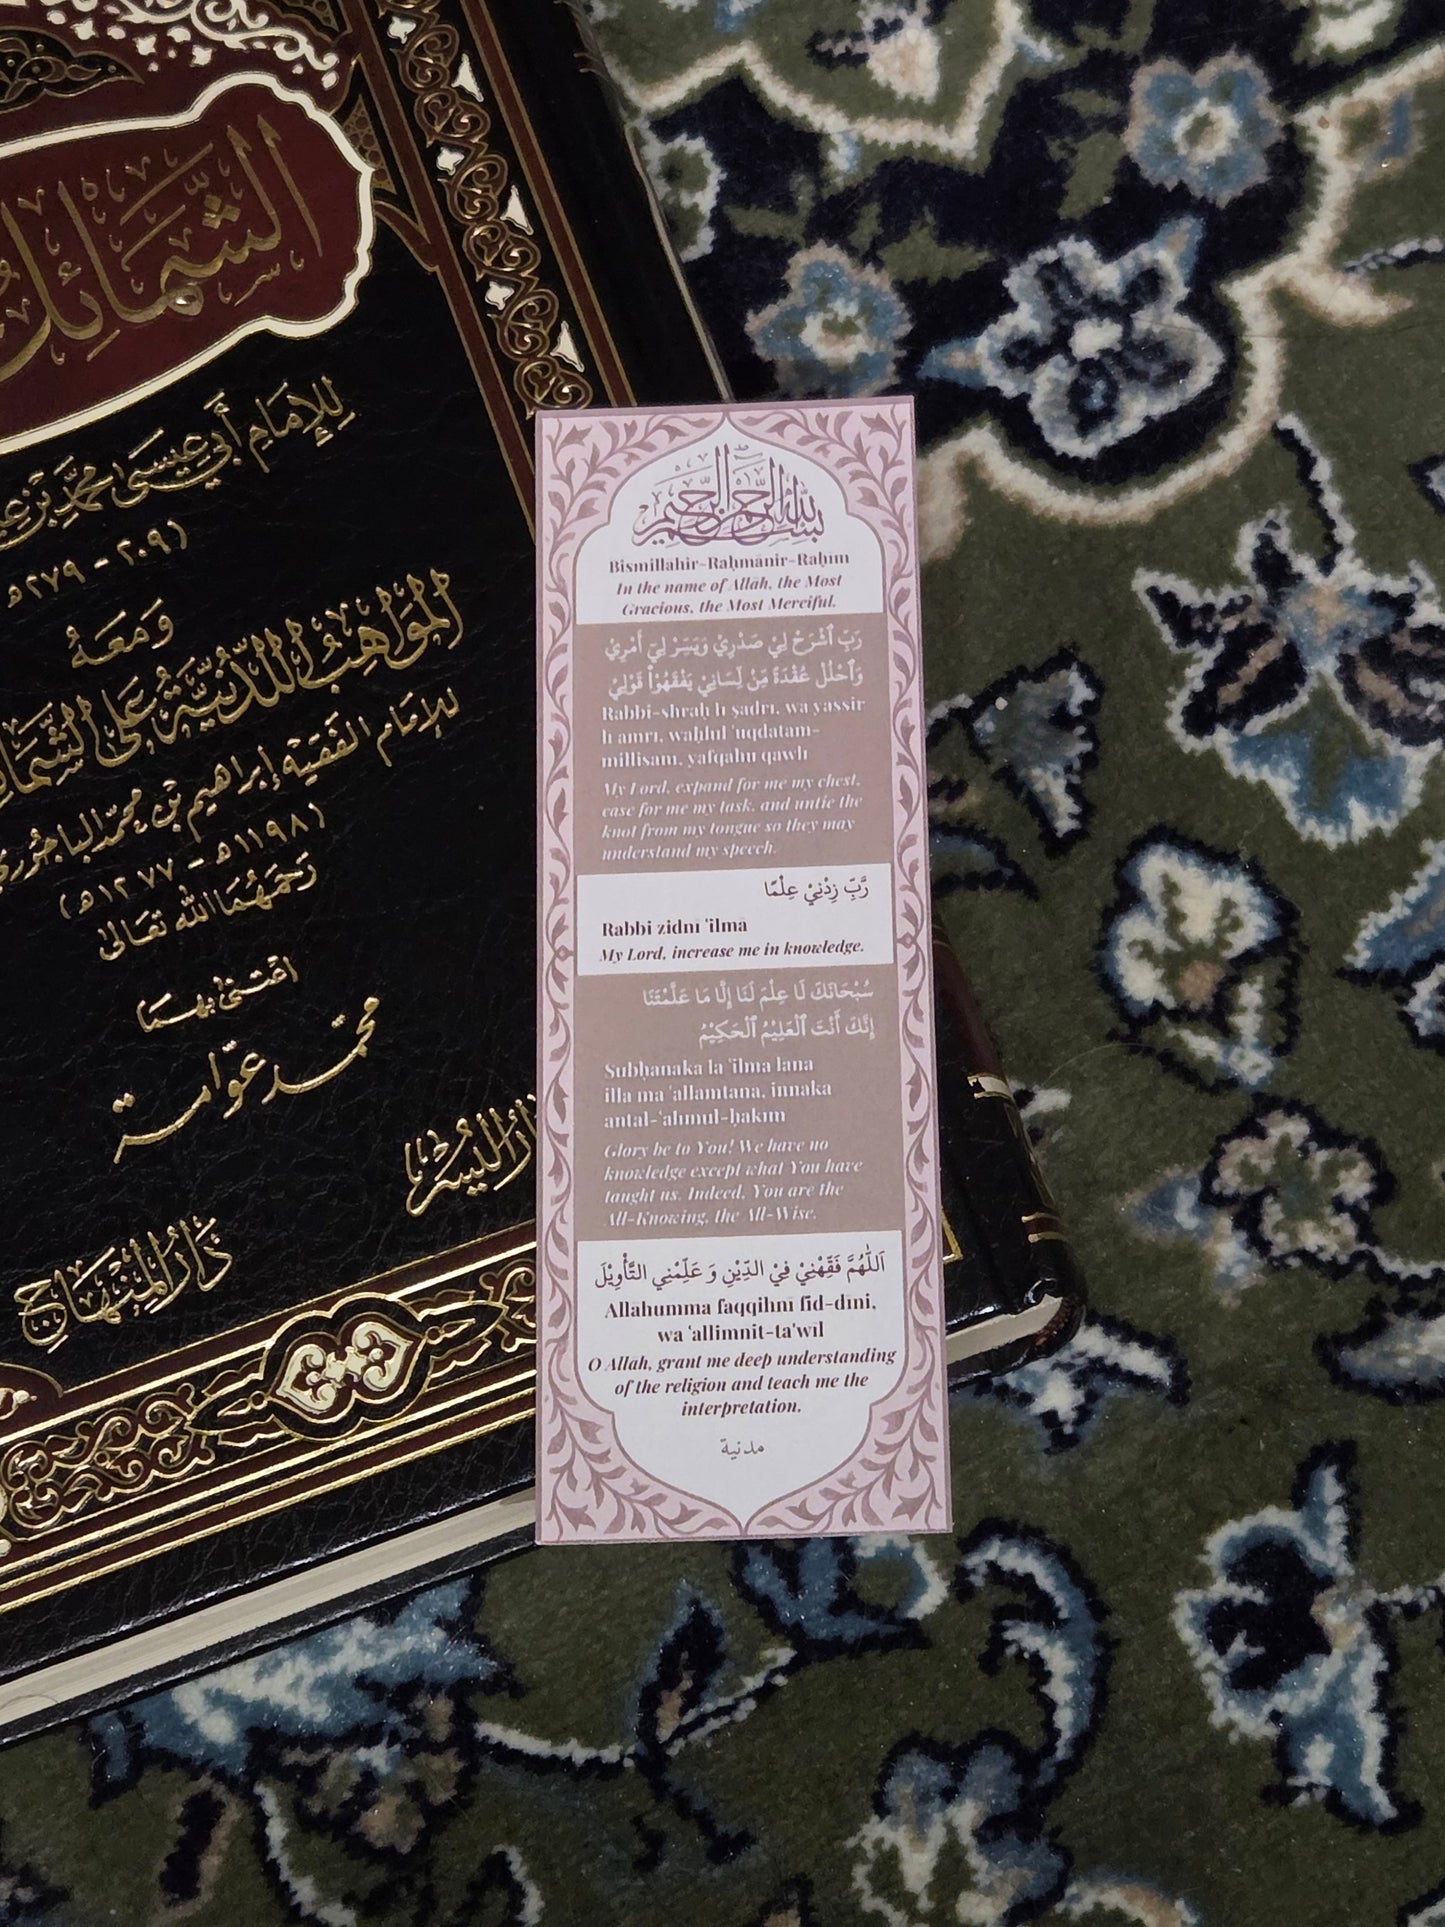 الشَّمَائِل
لِلإِمَامِ أَبِي عِيسَى مُحَمَّدِ بْنِ
(٢٠٩ - ٢٧٩ ه
وَمَعَهُ
المَوَاهِبُ اللَّدُنِّيَّةُ عَلَى الشَّمَائِل
لِلإِمَامِ الفَقِيهِ إِبْرَاهِيم بْنِ مُحَمَّد البَاجُورِي
(١١٩٨ه - ١٢٧٧ه)
رَحِمَهُمَا اللَّه تَعَالَىٰ
اعْتَنَىٰ بِهِمَا
محمَّد عَوَّامة
دَارُ اليُسْر
دَارُ المِنْهَاج
بِسْمِ اللهِ الرَّحْمٰنِ الرَّحِيْمِ
Bismillāhir-Raḥmānir-Raḥīm
In the name of Allāh, the Most
Gracious, the Most Merciful.
رَبِّ ٱشْرَحْ لِيْ صَدْرِيْ وَيَسِّرْ لِيْ أَمْرِيْ
وَٱحْلُلْ عُقْدَةً مِّنْ لِّسَانِيْ يَفْقَهُوْا قَوْلِيْ
Rabbi-shraḥ lī ṣadrī, wa yassir
lī amrī, waḥlul ʿuqdatam-
millisānī, yafqahū qawlī
My Lord, expand for me my chest,
ease for me my task, and untie the
knot from my tongue so they may
understand my speech.
رَّبِّ زِدْنِيْ عِلْمًا
Rabbi zidnī ʿilmā
My Lord, increase me in knowledge.
سُبْحَانَكَ لَا عِلْمَ لَنَا إِلَّا مَا عَلَّمْتَنَا
إِنَّكَ أَنْتَ ٱلْعَلِيْمُ ٱلْحَكِيْمُ
Subḥānaka lā ʿilma lanā
illā mā ʿallamtanā, innaka
antal-ʿalīmul-ḥakīm
Glory be to You! We have no
knowledge except what You have
taught us. Indeed, You are the
All-Knowing, the All-Wise.
اَللّٰهُمَّ فَقِّهْنِيْ فِيْ الدِّيْنِ وَ عَلِّمْنِي التَّأْوِيْلَ
Allāhumma faqqihnī fid-dīni,
wa ʿallimnit-ta'wīl
O Allāh, grant me deep understanding
of the religion and teach me the
interpretation.
مدنية